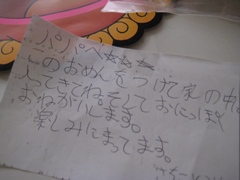 パパへ☆☆☆
このおめんをつけて家の中
入ってきてね。そしておにっぽく
おねがいします。
楽しみにまってます。